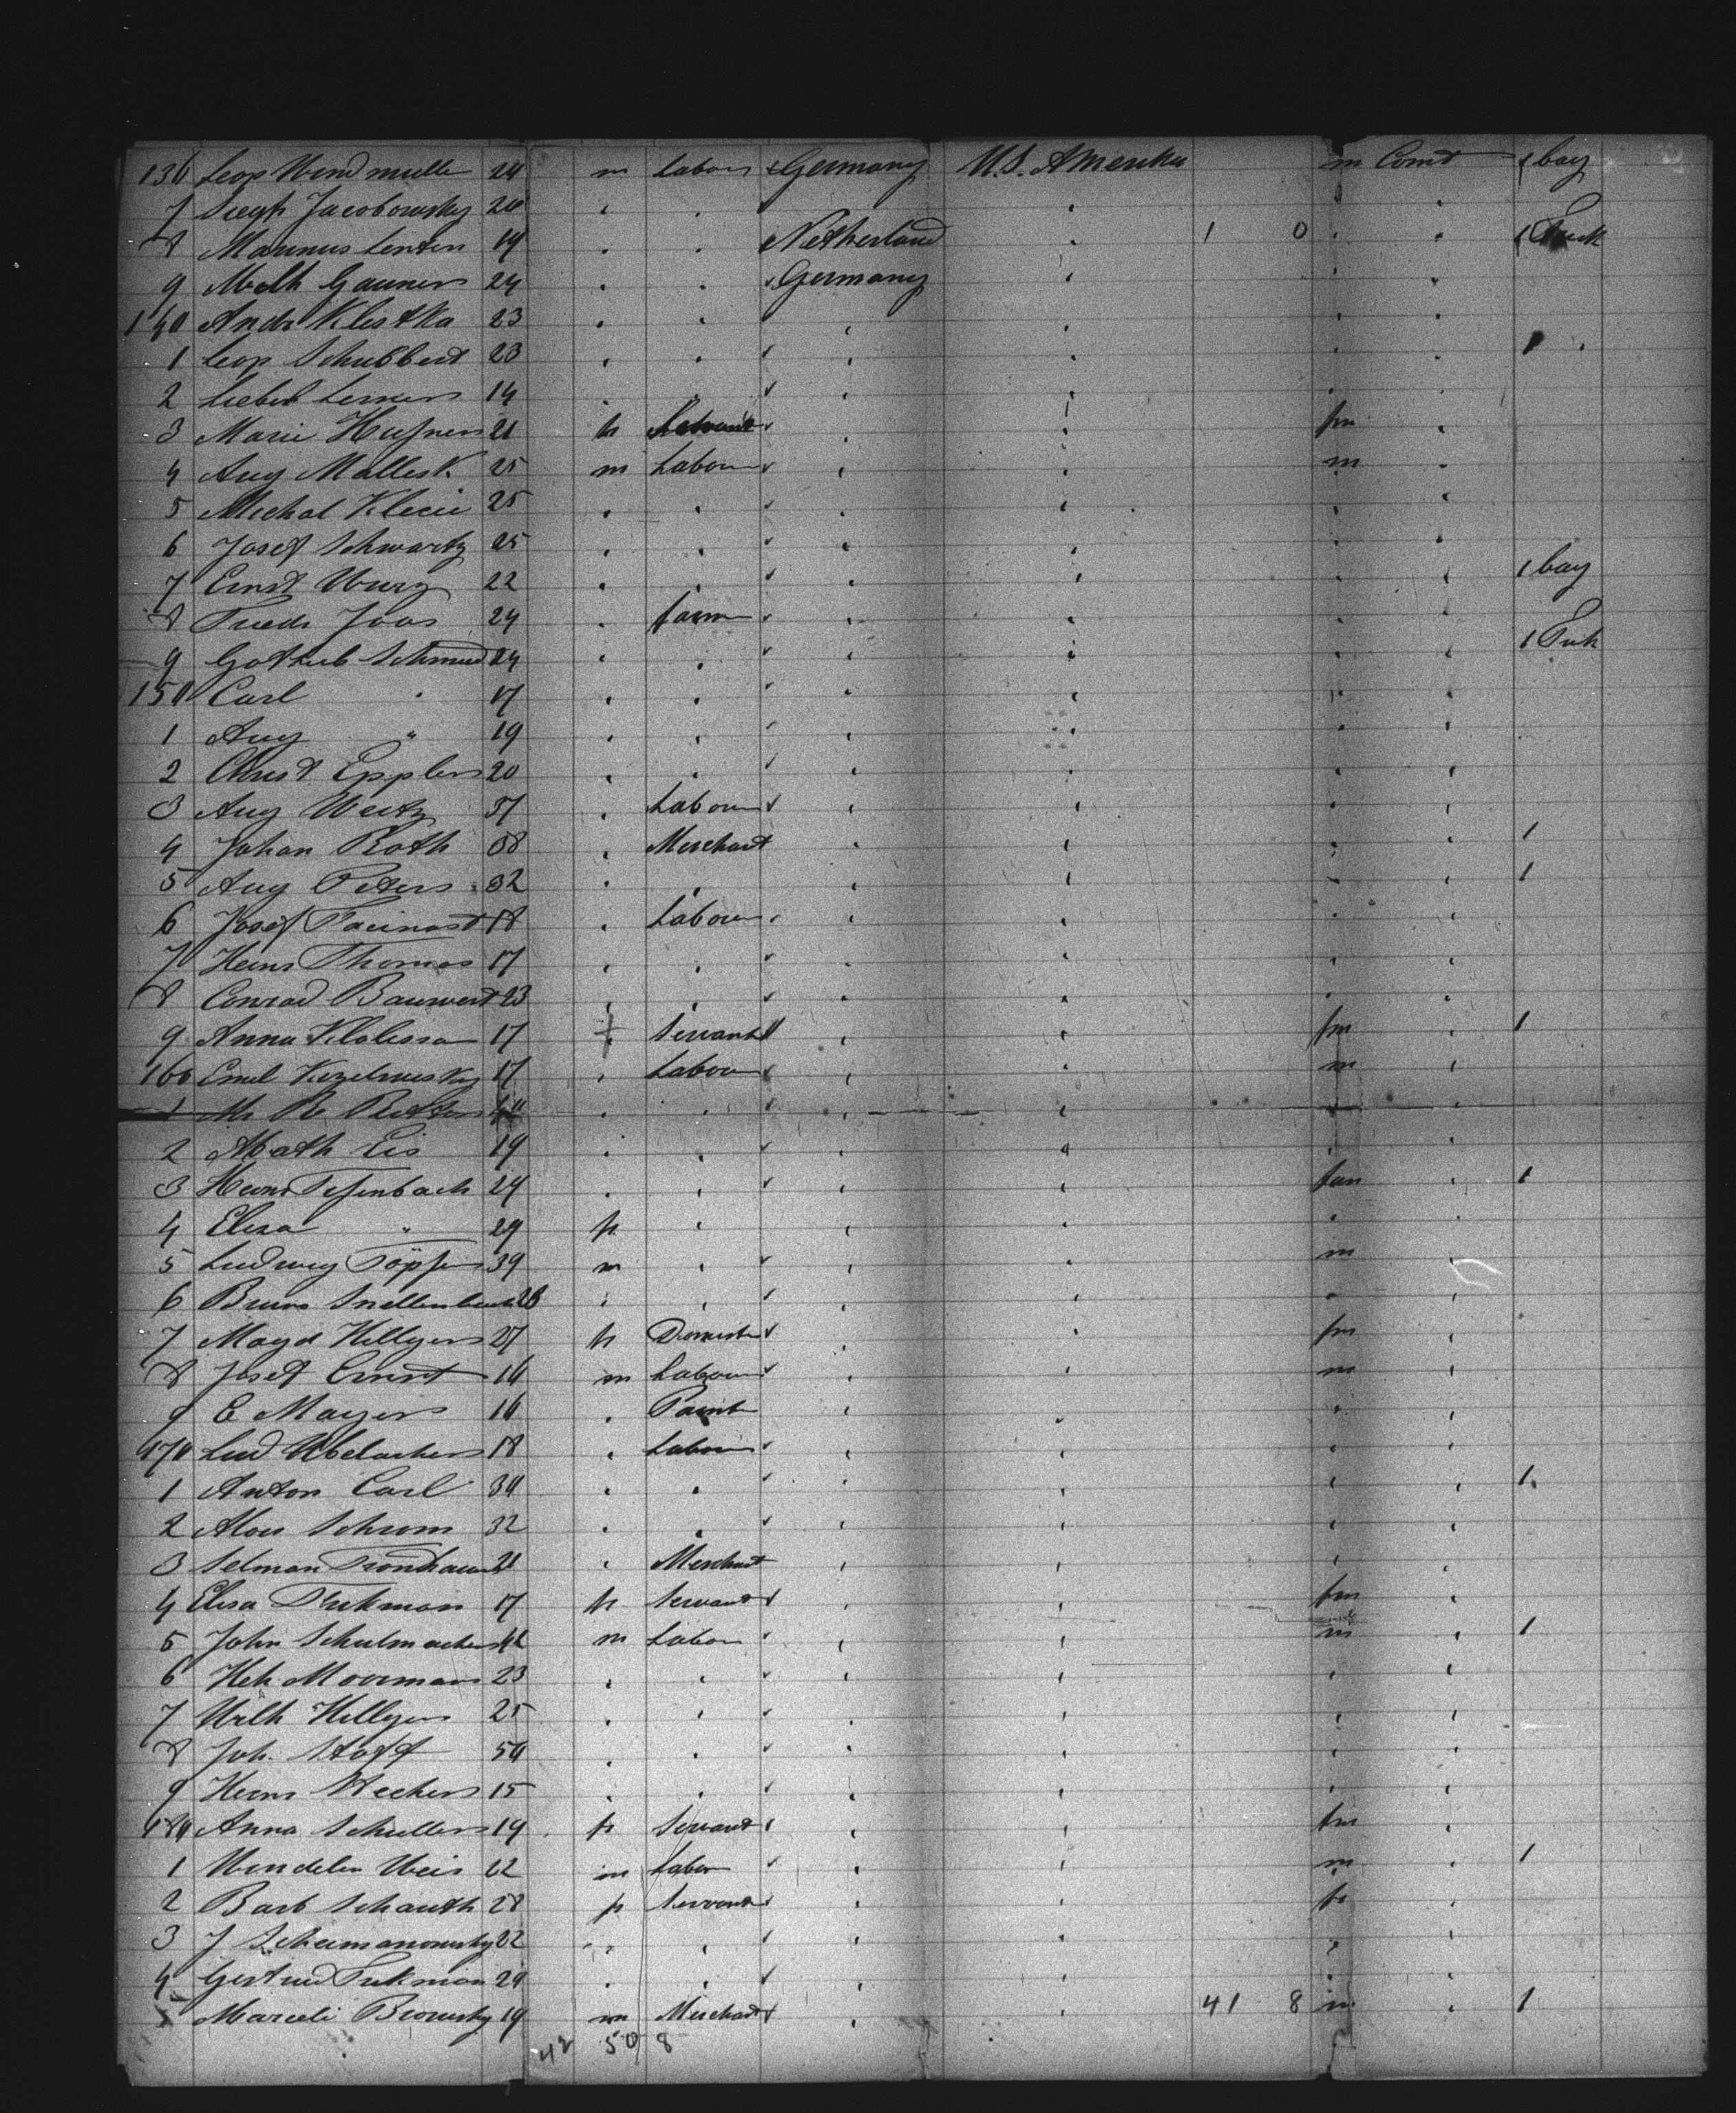 136 Leop Windmulle 24 m Labour Germany U.S. Amerika m Comt 1 bag
7 Siegh Jacobowsky 20
8 Marinus Lenten 19 Netherland 1 0 1 Trunk
9 Math Gauner 24 Germany
140 Andr Klestka 23
1 Leop Schubbert 23 1
2 Liebel Lerner 14
3 Marie Hufner 21 fr Servant fm
4 Aug Mallesk 25 m Labour m
5 Michal Klecie 25
6 Josef Schwartz 25
7 Ernst Wurz 22 1 bag
8 Friedr Joos 24 farm
9 Gottlieb Schmid 24 1 Truk
150 Carl " 17
1 Aug " 19
2 Christ Eppler 20
3 Aug Weitz 37 Labour
4 Johan Roth 38 Merchant 1
5 Aug Peters 32 1
6 Josef 18 Labour
7 Heinr Thomas 17
8 Conrad Bauwert 23
9 Anna 17 f Servant fm 1
160 Emil 17 Labour m
1
2 Math Eis 19
3 Heinr Tefenbach 24 fm 1
4 Elisa " 29 fr
5 Ludwig Töpfer 39 m m
6 Bruno 28
7 Magd Hillger 27 fr Domest fm
8 Josef Ernst 16 m Labour m
9 E Mayer 16 Paint
170 Lud Ubelacker 18 Labour
1 Anton Carl 30 1
2 Alois Schrom 32
3 Selman 21 Merchant
4 Elisa Tukman 17 fr Servant fm
5 John Schulmacher 42 m Labour m 1
6 Heh Moorman 23
7 Wilh Hillger 25
8 Joh. Stoff 50
9 Heinr Wecker 15
180 Anna Schuller 19 fr Servant fm
1 Wendelin Weis 22 m Labor m 1
2 Barb Schauth 28 fr Servant fr
3 J Scheimanowsky 22
4 Gertrud Tukman 24
5 Marceli Browsky 19 m Merchant 41 8 m 1
42 50 8